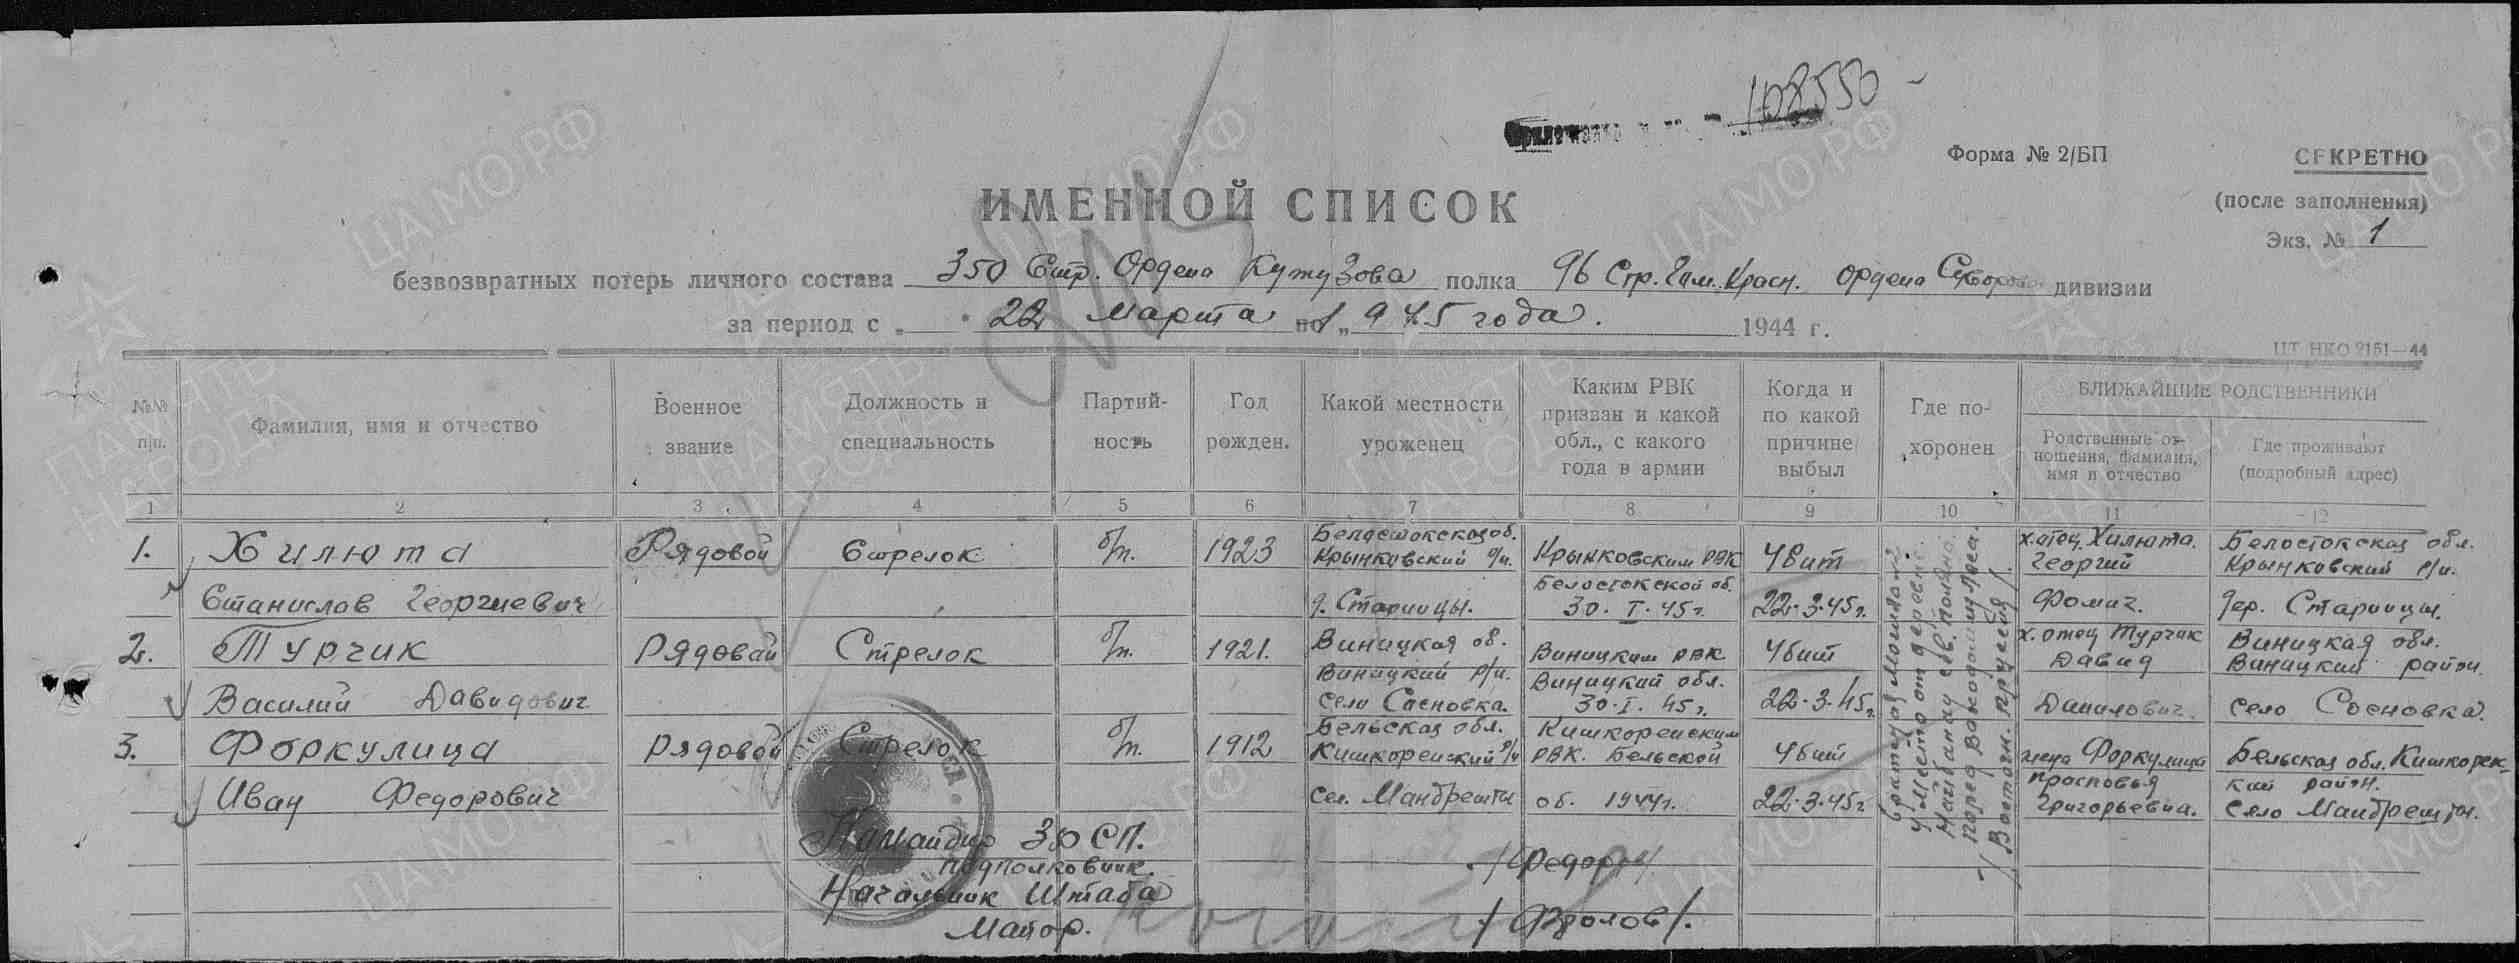 108550
Форма № 2/БП
СЕКРЕТНО
(после заполнения)
Экз. № 1
ИМЕННОЙ СПИСОК
безвозвратных потерь личного состава 350 Стр. Ордена Кутузова полка 96 Стр. Гом. Красн. Ордена Суворова дивизии
за период с „ " 22 Марта 1945 года. 1944 г.
ЦТ НКО 2151—44
№№ п/п.
Фамилия, имя и отчество
Военное звание
Должность и специальность
Партийность
Год рожден.
Какой местности уроженец
Каким РВК призван и какой обл., с какого года в армии
Когда и по какой причине выбыл
Где похоронен
БЛИЖАЙШИЕ РОДСТВЕННИКИ
Родственные отношения, фамилия, имя и отчество
Где проживают (подробный адрес)
1 2 3 4 5 6 7 8 9 10 11 12
1. Хилюта Рядовой Стрелок б/п. 1923 Белостокская об. Крынковский р/н. Крынковским РВК Убит х. отец Хилюта Георгий Белостокская обл. Крынковский р/н.
Станислав Георгиевич д. Старинцы. Белостокской об. 30. I. 45 г. 22.3.45 г. Фомич. дер. Старинцы.
2. Турчик Рядовой Стрелок б/п. 1921. Виницкая об. Виницкий р/н. Виницким РВК Убит х. отец Турчик Давид Виницкая обл. Виницкий район.
Василий Давидович село Сосновка. Виницкий обл. 30. I. 45 г. 22.3.45 г. Данилович. село Сосновка.
3. Форкулица Рядовой Стрелок б/п. 1912 Бельская обл. Кишкоренский р/н Кишкоренским РВК. Бельской Убит жена Форкулица Просковья Бельская обл. Кишкоренкий район.
Иван Федорович сел. Мандрешты об. 1944 г. 22.3.45 г. Григорьевна. село Мандрешты.
Братская могила
Восточн. Пруссия/.
Командир 350 СП.
подполковник. /Федоров/
Начальник Штаба
Майор. /Фролов/.
ПАМЯТЬ НАРОДА
ЦАМО РФ